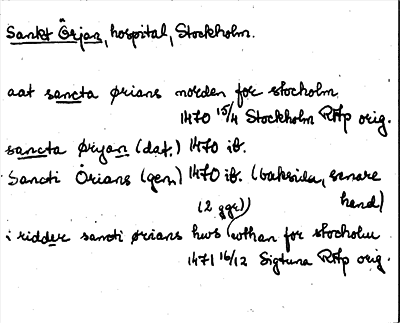 Sankt Örjan, hospital, Stockholm.
aat sancta ørians norden for stocholm
1470 15/4 Stockholm RAp orig.
sancta øryan (dat.) 1470 ib.
Sancti Örians (gen) 1470 ib. (baksida, senare
(2 ggr)) hand)
i ridder sancti ørians hws wthan for stocholm
1471 16/12 Sigtuna RAp orig.